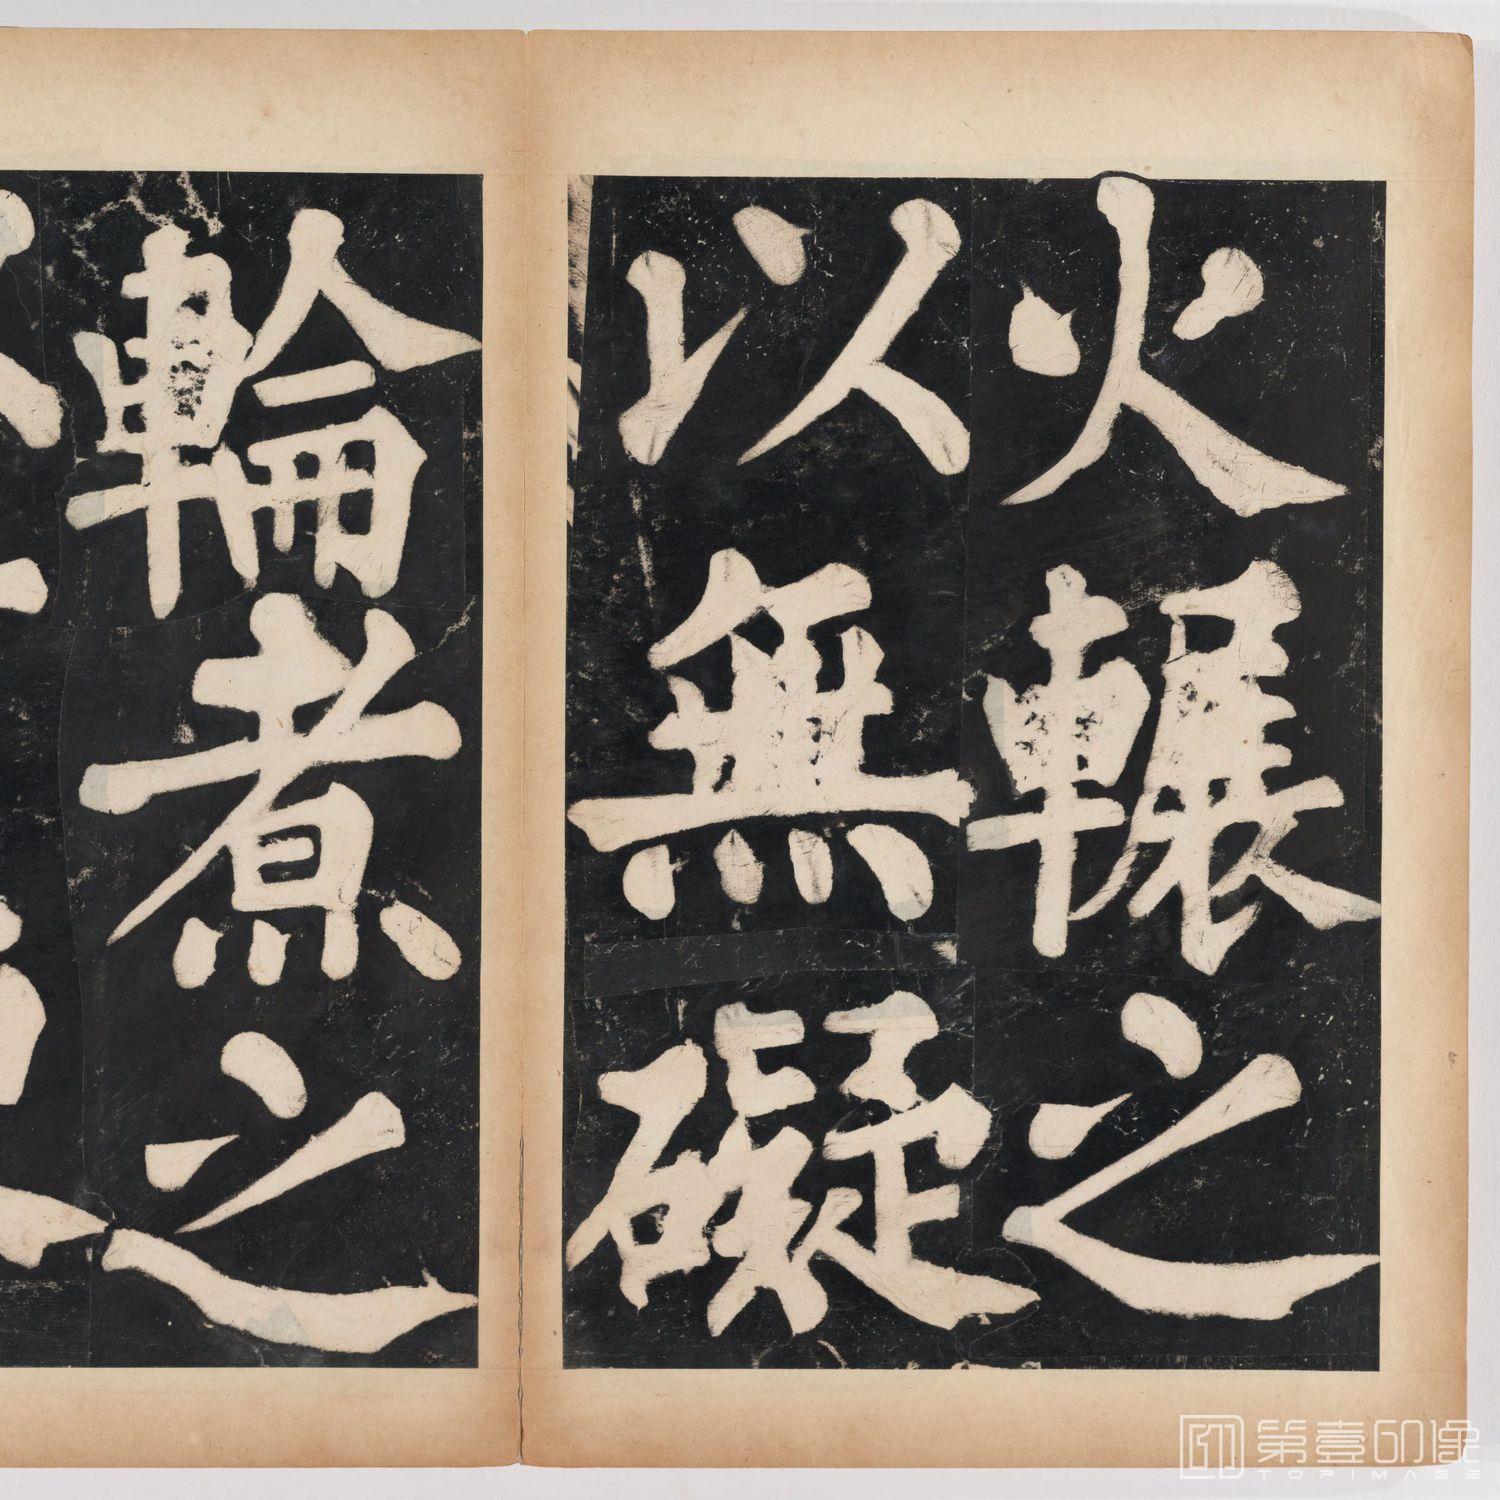 火輾之
以無礙
輪煮之
第壹印像
TOPIMAGE